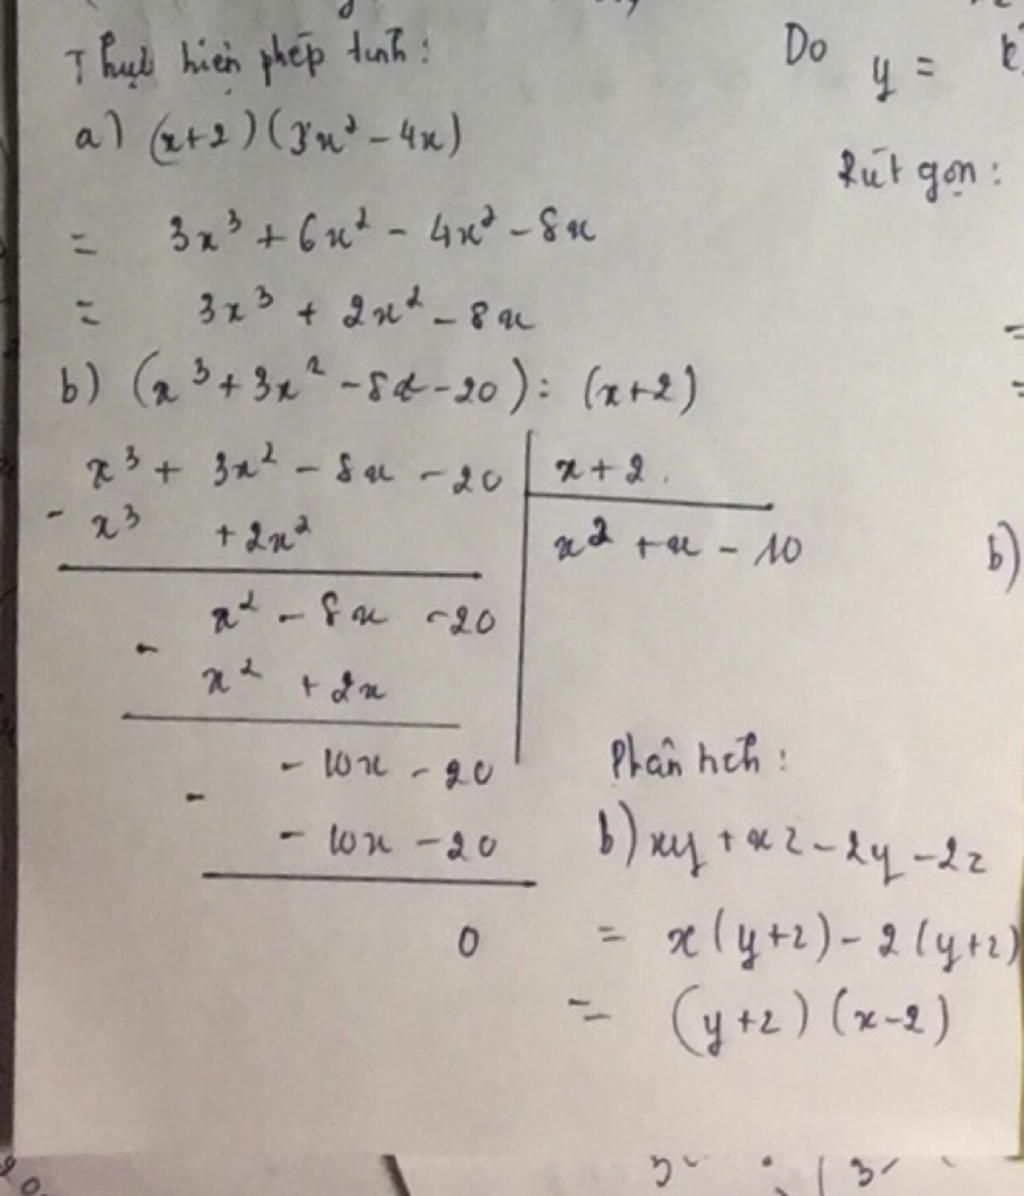 Thực hiện phép tính:
a) (x+2)(3x² - 4x)
= 3x³ + 6x² - 4x² - 8x
= 3x³ + 2x² - 8x
b) (x³ + 3x² - 8x - 20) : (x+2)
x³ + 3x² - 8x - 20 | x + 2
- x³ + 2x² | x² + x - 10
x² - 8x - 20
- x² + 2x
- 10x - 20
- - 10x - 20
0
Do y =
Rút gọn:
=
=
b)
Phân tích:
b) xy + xz - 2y - 2z
= x(y+z) - 2(y+z)
= (y+z)(x-2)